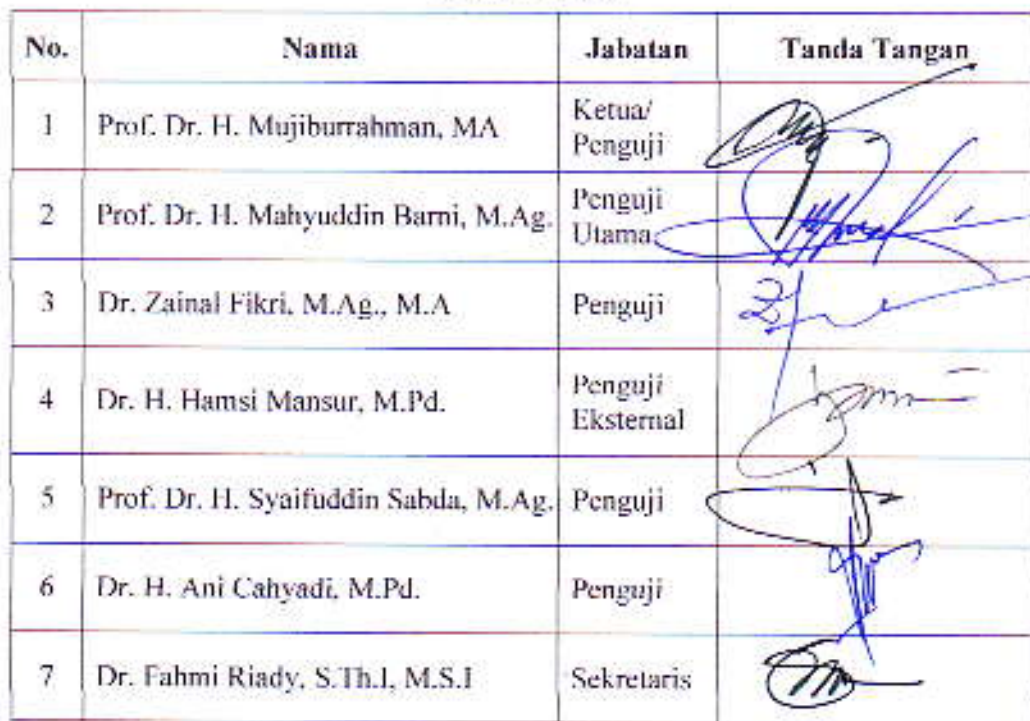 No. Nama Jabatan Tanda Tangan
1 Prof. Dr. H. Mujiburrahman, MA Ketua/
Penguji
2 Prof. Dr. H. Mahyuddin Barni, M.Ag. Penguji
Utama
3 Dr. Zainal Fikri, M.Ag., M.A Penguji
4 Dr. H. Hamsi Mansur, M.Pd. Penguji
Eksternal
5 Prof. Dr. H. Syaifuddin Sabda, M.Ag. Penguji
6 Dr. H. Ani Cahyadi, M.Pd. Penguji
7 Dr. Fahmi Riady, S.Th.I, M.S.I Sekretaris